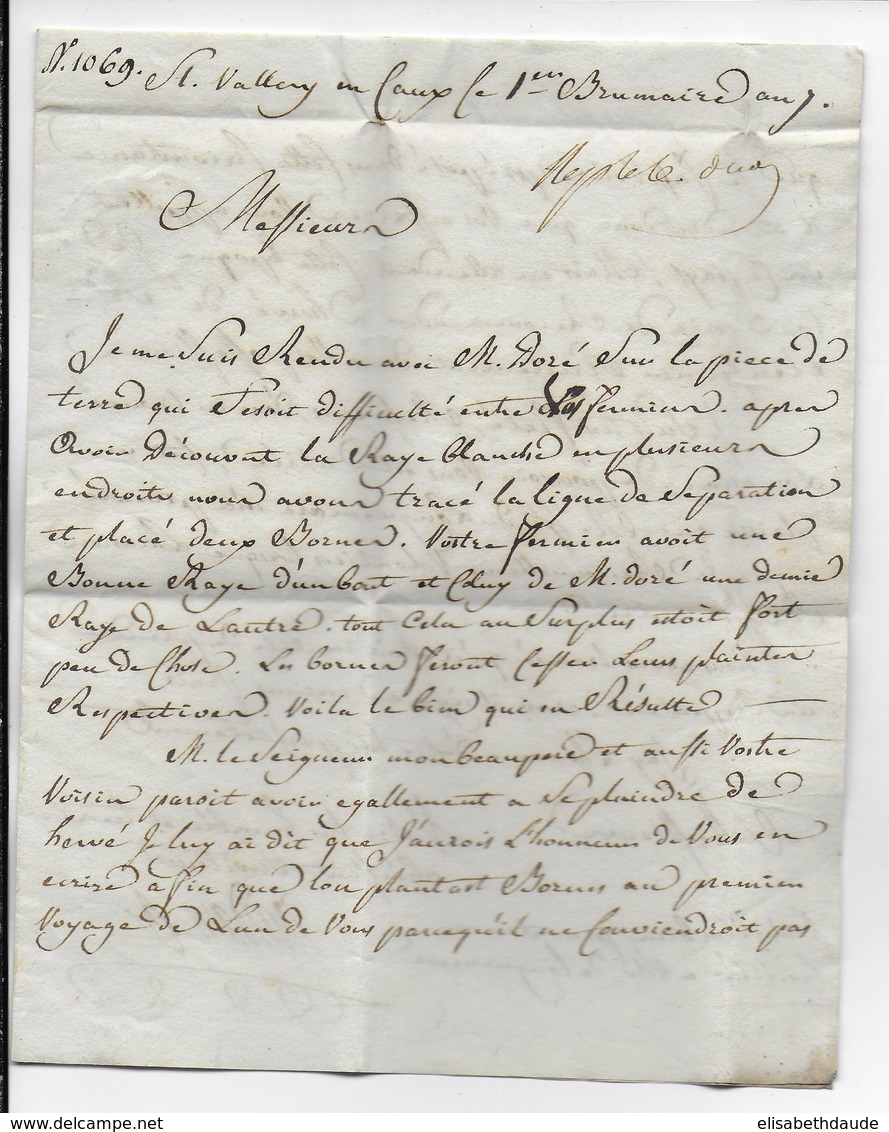 N°. 1069.
St. Vallery en Caux le 1er Brumaire an 7.
Rep le 6. duo
Messieurs
Je me Suis Rendu avec M. Doré Sur la piece de
terre qui fesoit difficulté entre Vos fermiers. apres
Avoir Découvert la Raye blanche en plusieurs
endroits nous avons tracé la ligne de Separation
et placé deux Bornes. Vostre fermier avoit une
Bonne Raye d'un bout et Celuy de M. doré une demie
Raye de Lautre. tout Cela au Surplus etoit fort
peu de Chose. Les bornes feront Cesser Leurs plaintes
Respectives. Voila le bien qui en Résulte
M. le Seigneur mon beaupere et aussi Vostre
Voisin paroit avoir egallement a Se plaindre de
hervé Je luy ai dit que J'aurois L'honneur de Vous en
ecrire afin que l'on plantast Bornes au premier
Voyage de L'un de Vous parcequ'il ne Conviendroit pas
elisabethdaude